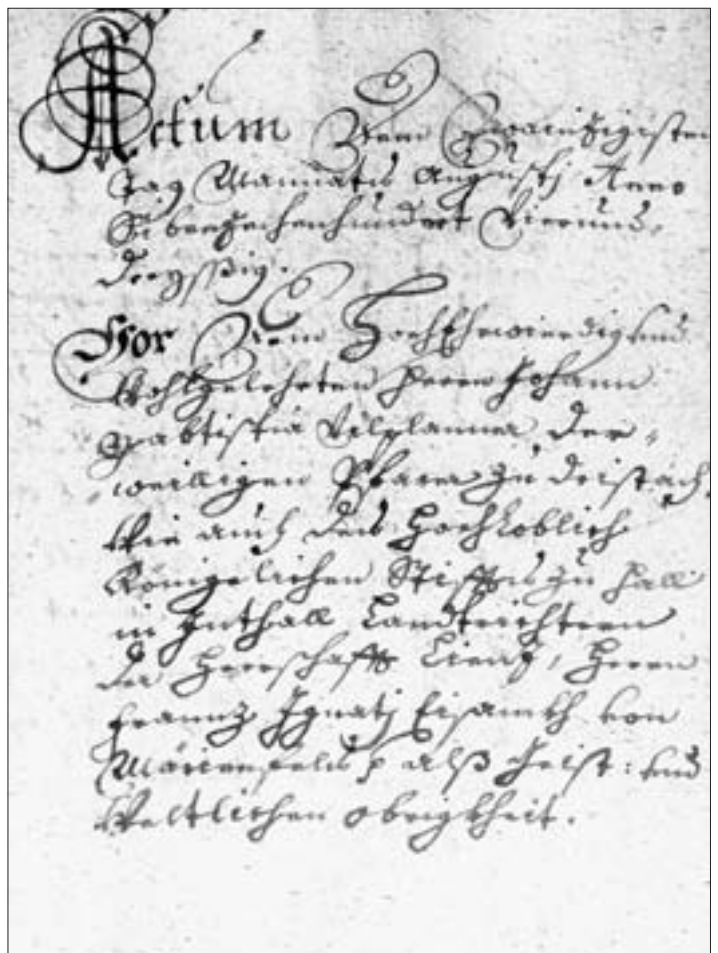 Actum Dem Zwainzigisten
Tag Monnats Augustj Anno
Sibenzechenhundert Vierund-
dreyssig.
Vor Dem Hochehrwierdig und
Wohlgelehrten Herrn Johann
Babtista Vilplanner, der-
weilligen Pfarrer zu Tristach,
Wie auch des Hochloblich
Königelichen Stiffts zu Hall
in Inthall Landtrichtern
der Herrschafft Lienz, Herrn
Frannz Ignatj Eisankh von
Märiensfelds p alß Geist: und
Weltlichen obrigkheit.